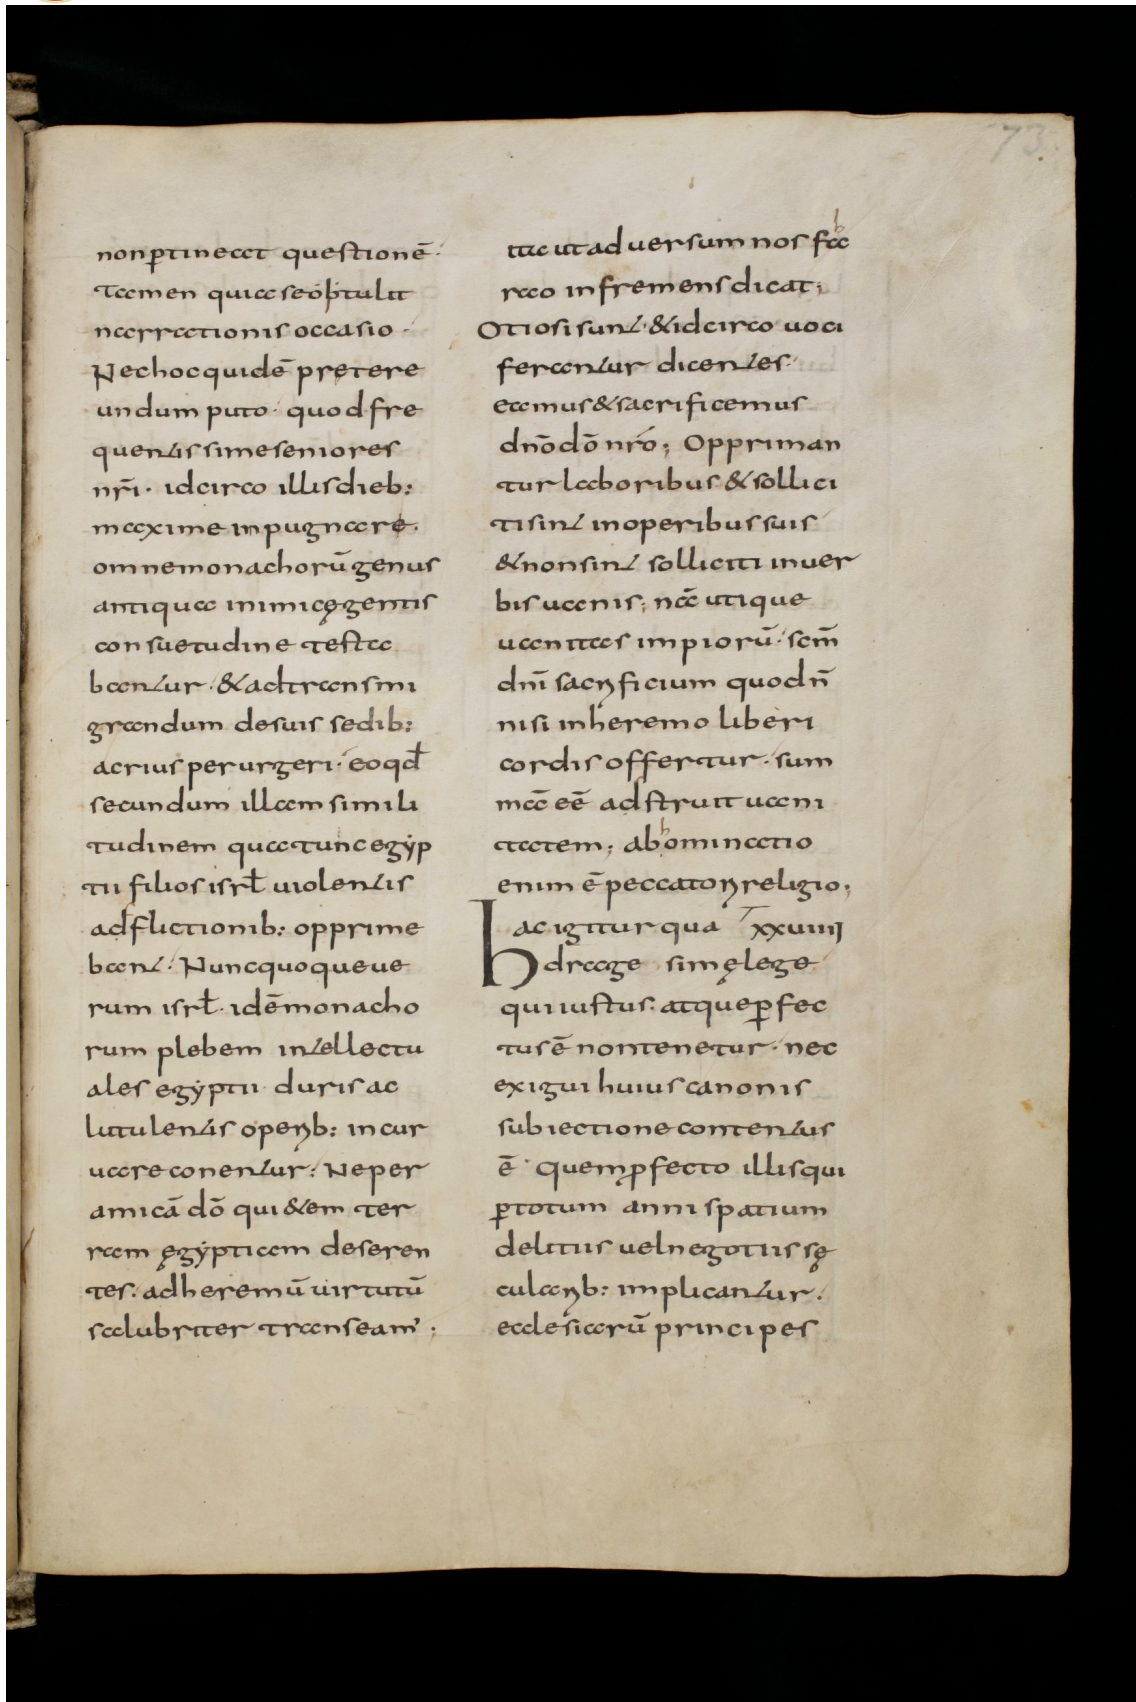 73.
non ꝑtineat questionē·
Tamen quia se obtulit
narrationis occasio·
Nec hoc quidē pretere
undum puto· quod fre
quentissime seniores
nr̄i· idcirco illis dieb:
maxime inpugnare·
omne monachorū genus
antiquae inimicę gentis
consuetudine testa
bantur· & ad transmi
grandum de suis sedib:
acrius perurgeri· eo qđ
secundum illam simili
tudinem qua tunc egẏp
tii filios isrł uiolentis
adflictionib: opprime
bant· Nunc quoque ue
rum isrł· idē monacho
rum plebem intellectu
ales egẏptii duris ac
lutulentis operib: incur
uare conentur: Ne per
amicā dō quietem ter
ram ęgẏptiam deseren
tes· ad heremū uirtutū
salubriter transeam';
tiae ut aduersum nos fa
rao infremens dicat;
Otiosi sunt & idcirco uoci
ferantur dicentes·
eamus & sacrificemus
dn̄o dō nr̄o; Oppriman
tur laboribus & sollici
ti sint in operibus suis
& non sint solliciti in uer
bis uanis; nā utique
uanitas impiorū· scm̄
dn̄i sacrificium quod n̄
nisi in heremo liberi
cordis offertur· sum
mā eē adstruit uani
tatem; abominatio
enim ē peccatori religio;
Hac igitur qua XXVIIII
dragesimę lege
qui iustus· atque ꝑfec
tus ē non tenetur· nec
exigui huius canonis
subiectione contentus
ē· Quem ꝓfecto illis qui
ꝑ totum anni spatium
delitiis uel negotiis sę
cularib: implicantur·
ecclesiarū principes